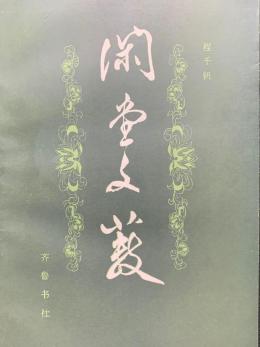 程千帆
闲堂文薮
齐鲁书社